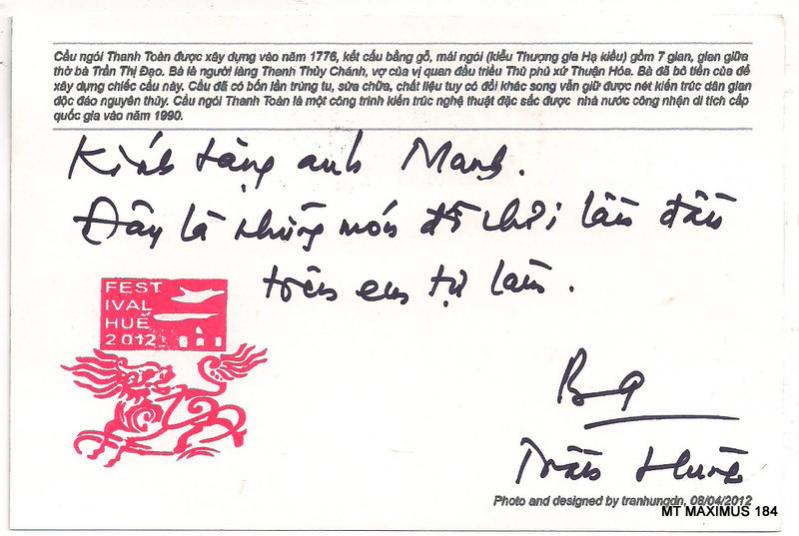 Cầu ngói Thanh Toàn được xây dựng vào năm 1776, kết cấu bằng gỗ, mái ngói (kiểu Thượng gia Hạ kiều) gồm 7 gian, gian giữa
thờ bà Trần Thị Đạo. Bà là người làng Thanh Thủy Chánh, vợ của vị quan đầu triều Thủ phủ xứ Thuận Hóa. Bà đã bỏ tiền của để
xây dựng chiếc cầu này. Cầu đã có bốn lần trùng tu, sửa chữa, chất liệu tuy có đổi khác song vẫn giữ được nét kiến trúc dân gian
độc đáo nguyên thủy. Cầu ngói Thanh Toàn là một công trình kiến trúc nghệ thuật đặc sắc được nhà nước công nhận di tích cấp
quốc gia vào năm 1990.
Kính tặng anh Mạnh.
Đây là những món đồ chơi lần đầu
tiên em tự làm.
FEST
IVAL
HUẾ
2012
Trần Hùng
Photo and designed by tranhungdn, 08/04/2012
MT MAXIMUS 184